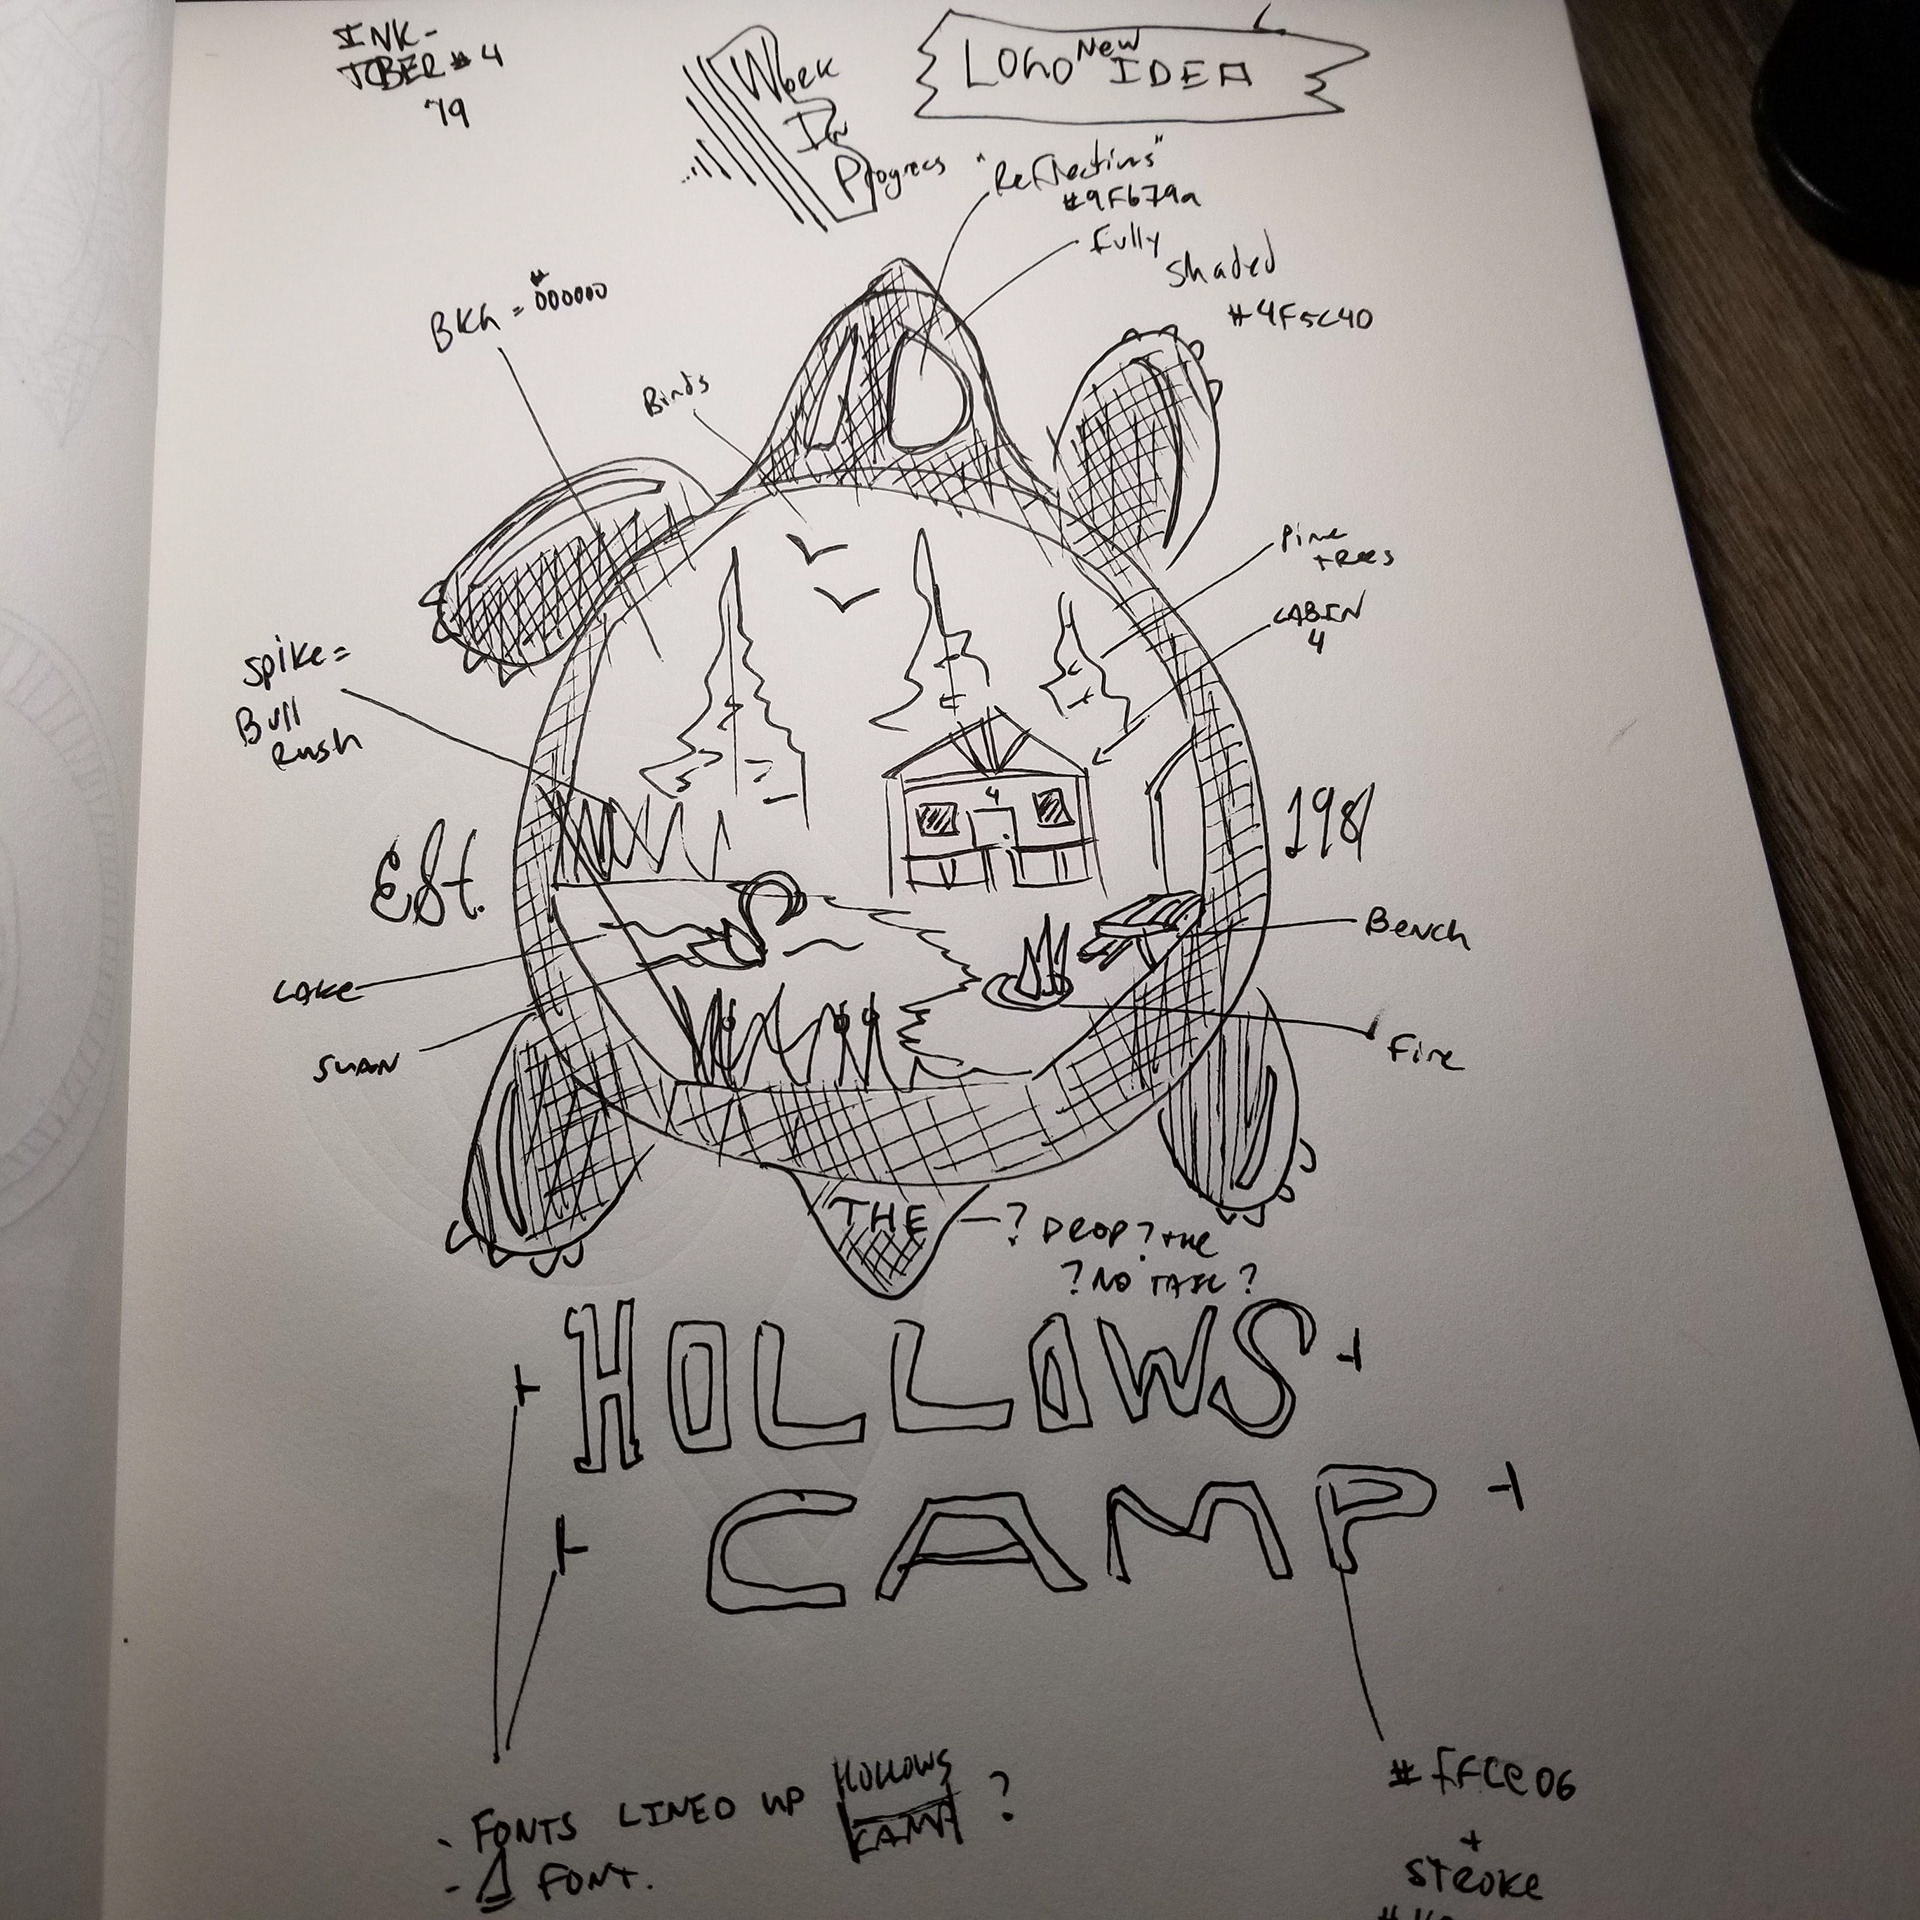 INK-
TOBER #4
'19
Work
In
Progress
New
LOGO IDEA
"Reflections"
#9F679a
fully
shaded
#4F5C40
BKG = #000000
Birds
Pine
trees
CABIN
4
spike =
Bull
Rush
4
Est.
1981
Bench
LAKe
SWAN
Fire
THE
? DROP? the
? NO TAIL ?
HOLLOWS
CAMP
- FONTS LINED UP HOLLOWS
CAMP ?
- Δ FONT.
#FFCe06
+
STROKe